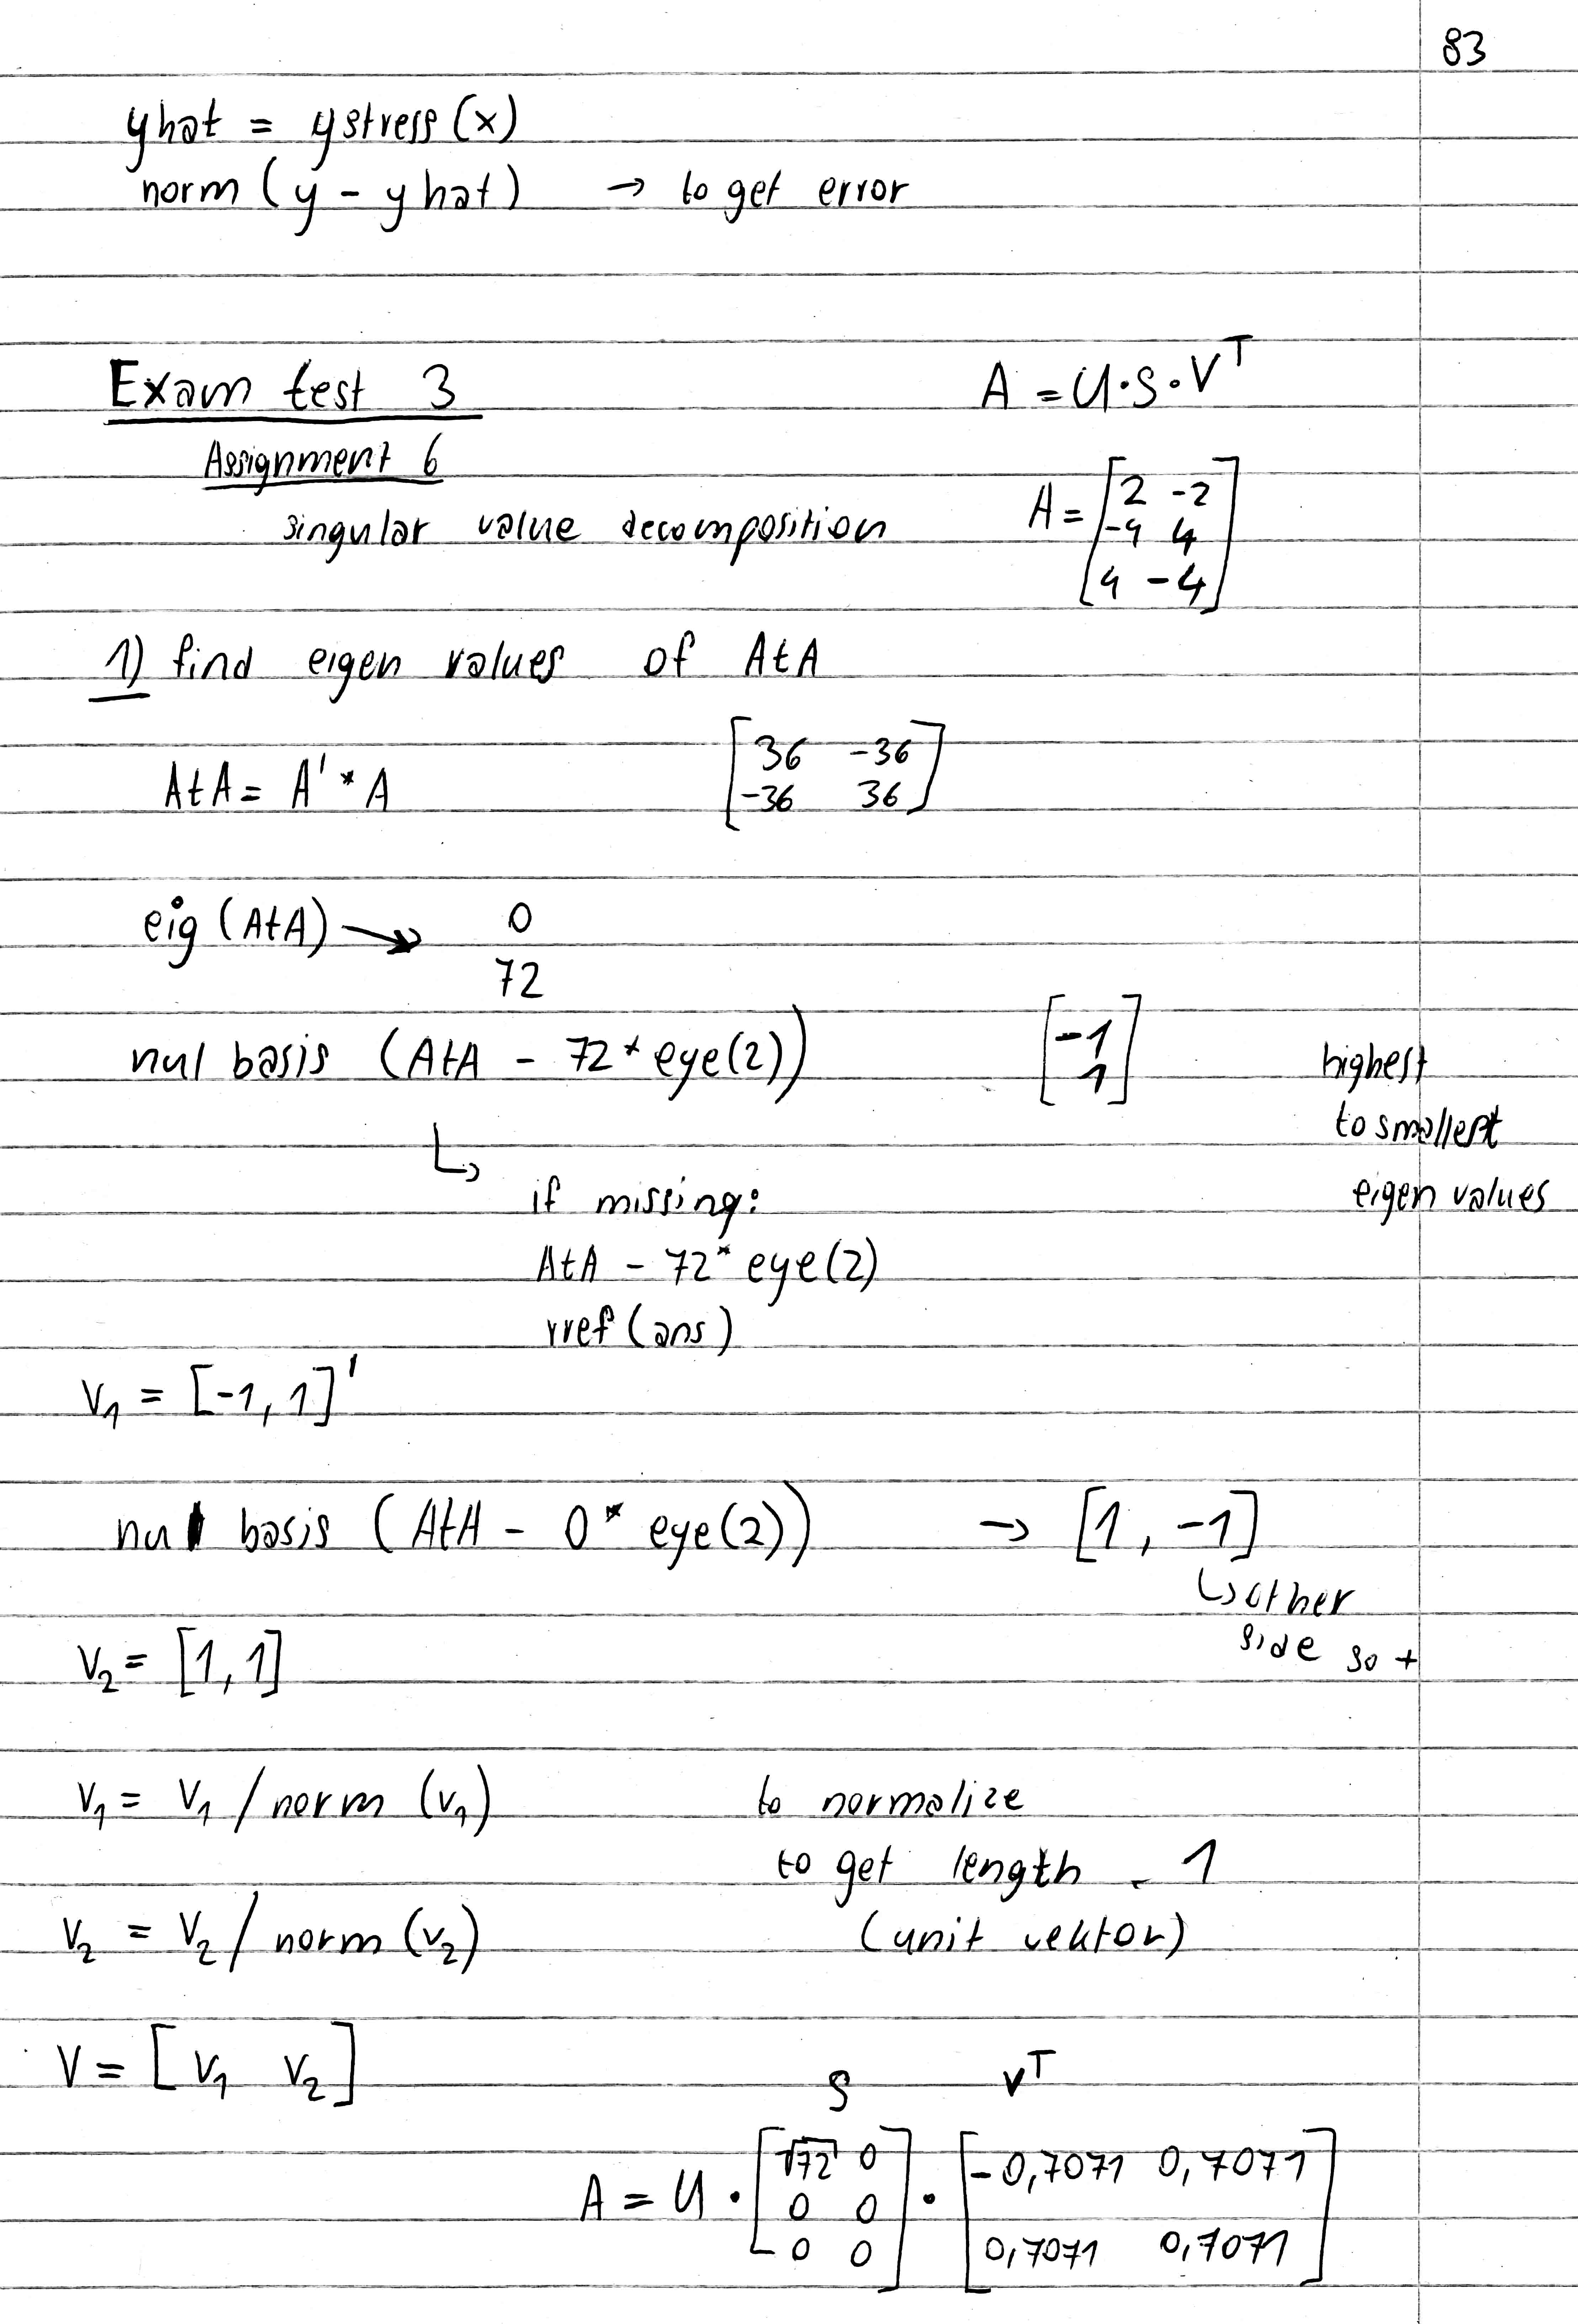 83
yhat = ystress(x)
norm(y - yhat) → to get error
Exam test 3
A = U·S·V^T
Assignment 6
singular value decomposition
A = [2 -2
-4 4
4 -4]
1) find eigen values of AtA
AtA = A' * A
[36 -36
-36 36]
eig(AtA) → 0
72
nul basis (AtA - 72* eye(2))
[-1
1]
highest
to smallest
eigen values
↳
if missing:
AtA - 72* eye(2)
rref(ans)
v1 = [-1, 1]'
nul basis (AtA - 0* eye(2)) → [1, -1]
↳ other
side so +
v2 = [1, 1]
v1 = v1 / norm (v1) to normalize
to get length - 1
v2 = v2 / norm (v2) (unit vektor)
V = [v1 v2]
S V^T
A = U · [√72 0
0 0
0 0] · [-0,7071 0,7071
0,7071 0,7071]